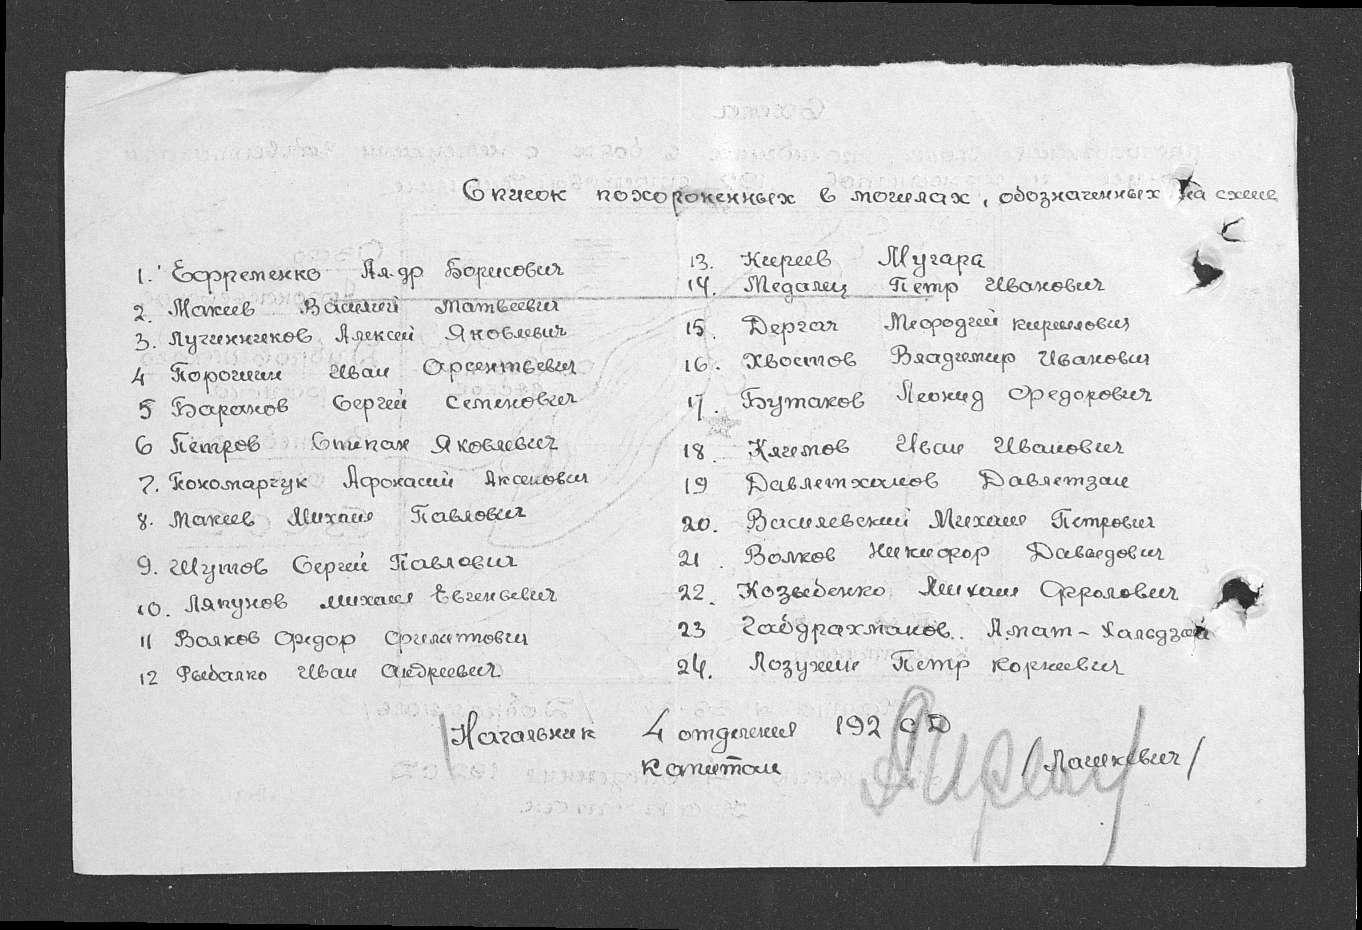 Список похороненных в могилах, обозначенных на схеме
1. Ефременко Ал-др Борисович
2. Макеев Василий Матвеевич
3. Лучинников Алексей Яковлевич
4 Порошин Иван Арсентьевич
5 Баранов Сергей Семенович
6 Петров Степан Яковлевич
7. Пономарчук Афонасий Аксенович
8. Макеев Михаил Павлович
9. Шутов Сергей Павлович
10. Ляпунов Михаил Евгеньевич
11 Волков Федор Филитович
12 Рыбалко Иван Андреевич
13. Киреев Мугара
14. Медалец Петр Иванович
15. Дергач Мефодий Кирилович
16. Хвостов Владимир Иванович
17. Бутаков Леонид Федорович
18. Климов Иван Иванович
19 Давлетханов Давлетзан
20. Василевский Михаил Петрович
21. Волков Никифор Давыдович
22. Козыбенко Михаил Фролович
23 Габдрахманов Амат-Халсдзан
24. Лозухин Петр Корнеевич
/Начальник 4 отделения 192 СД
Капитан /Лашкевич/